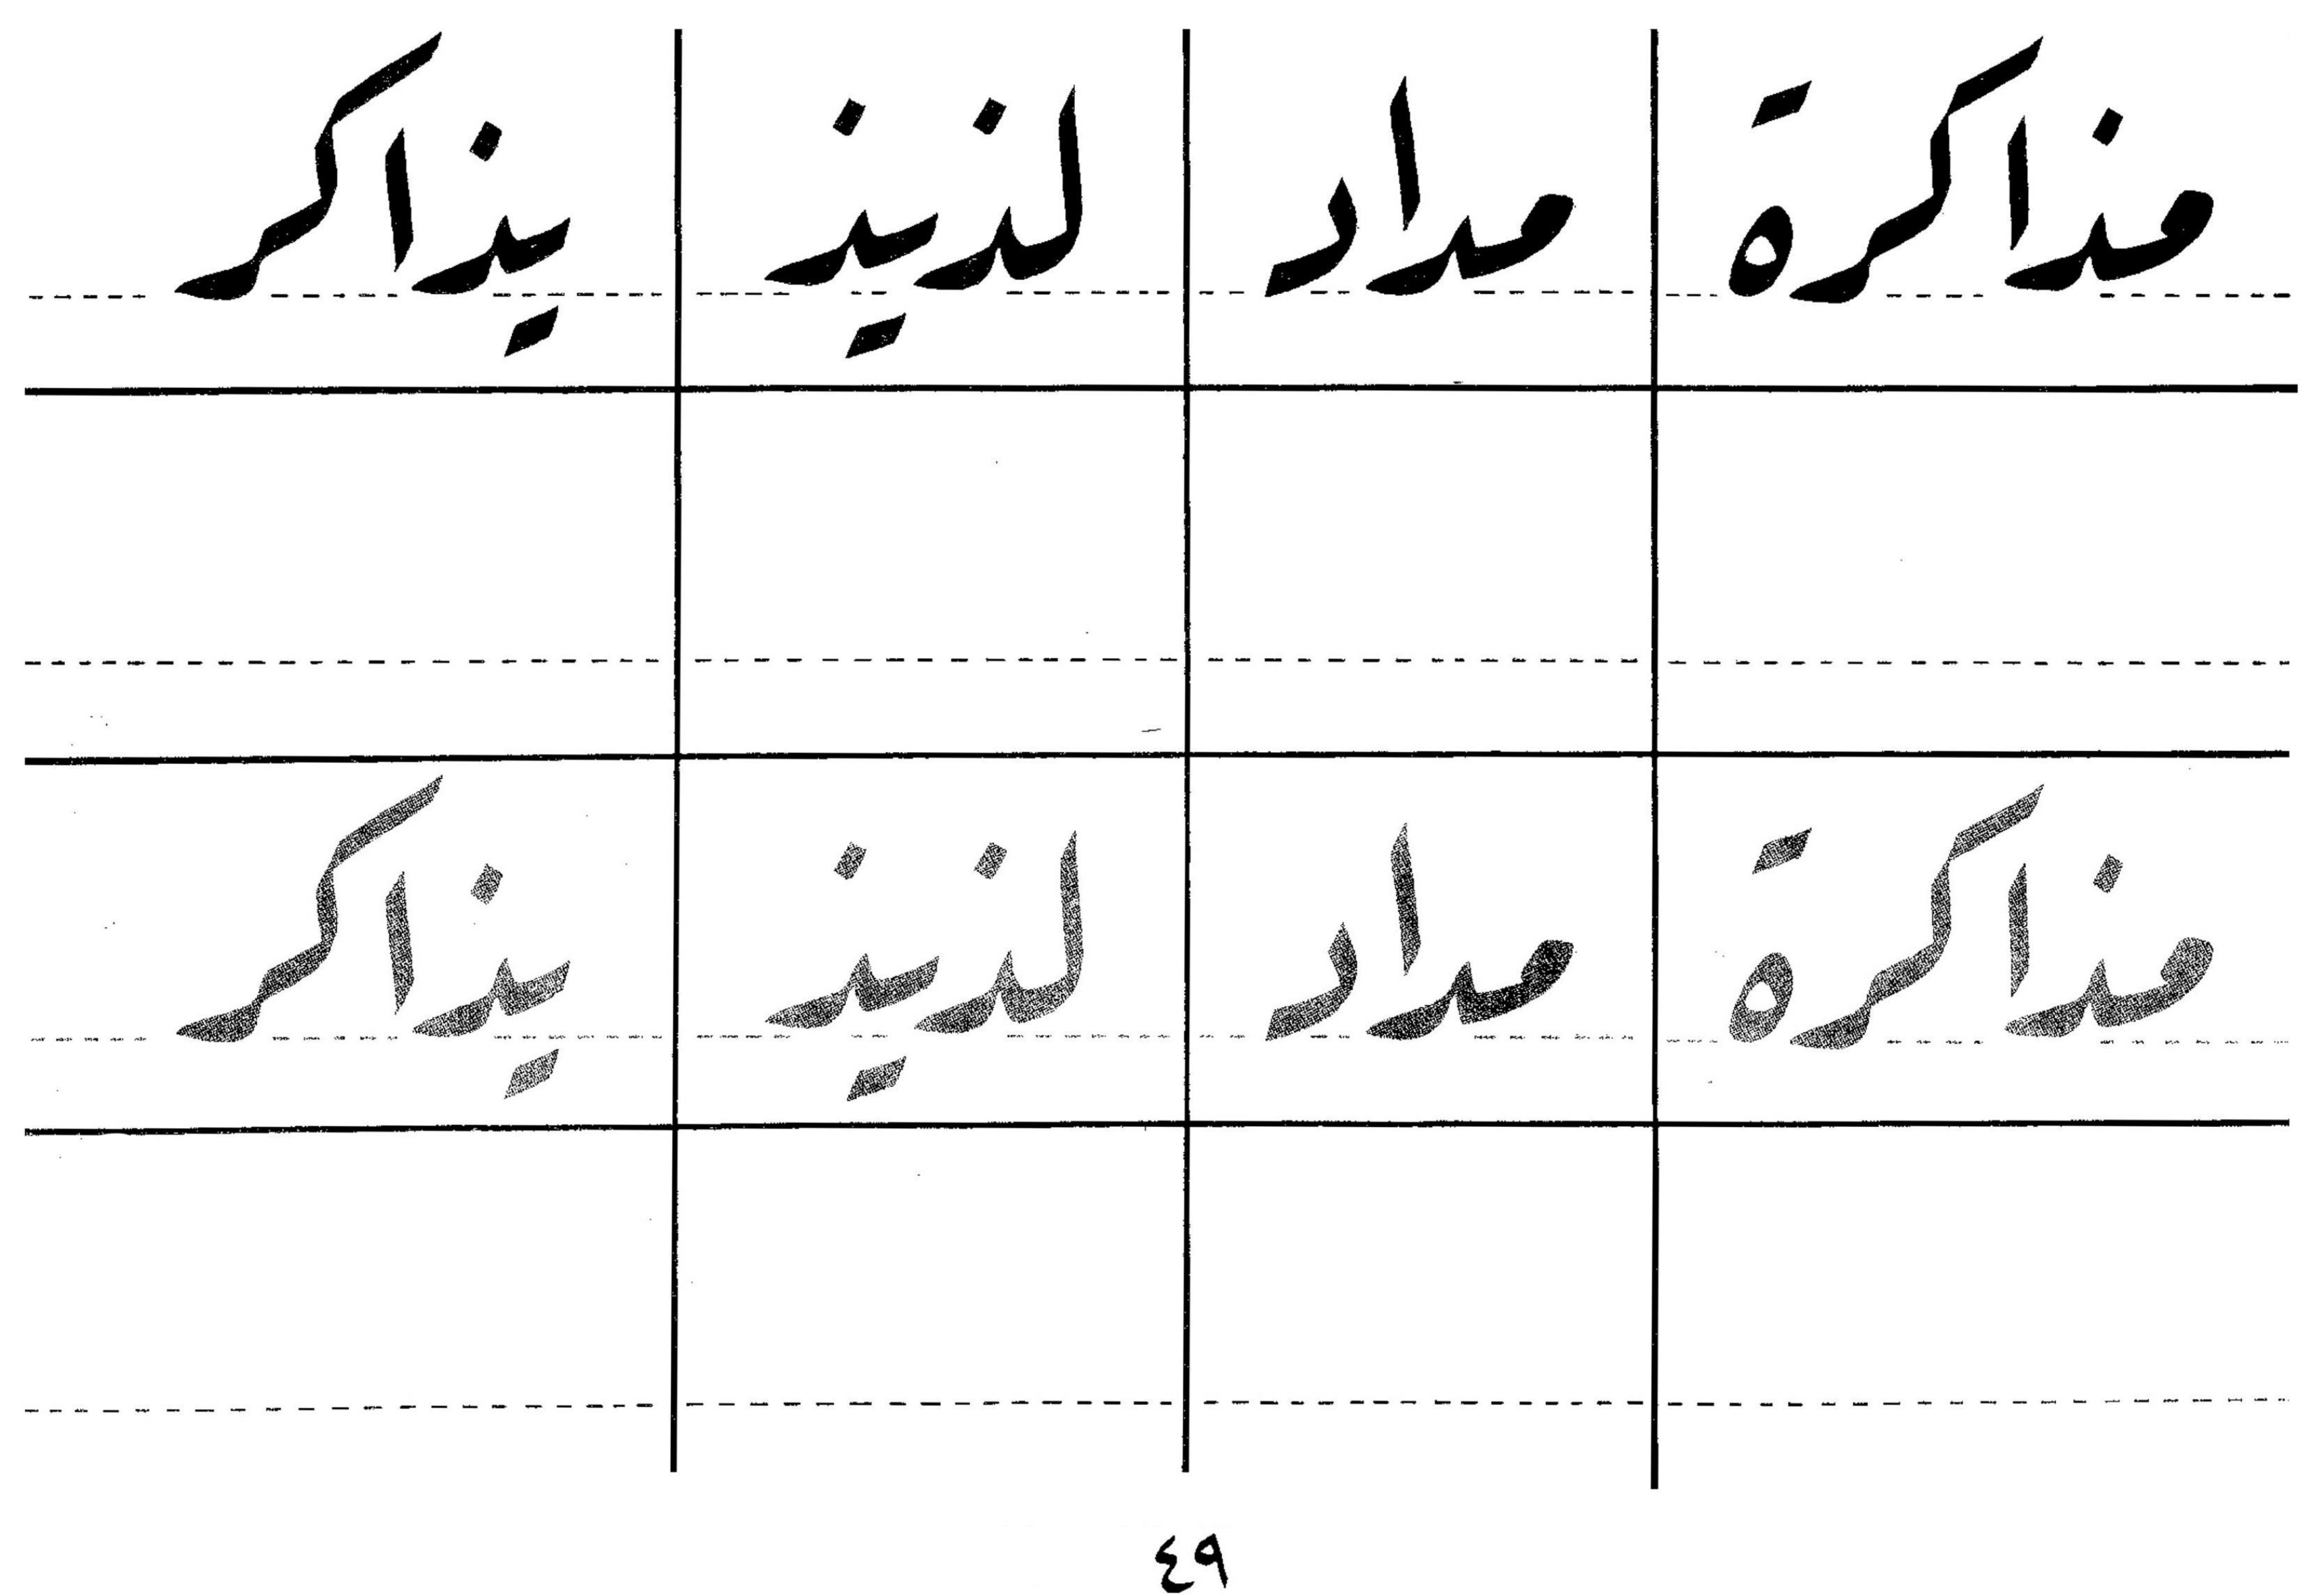 مذاكرة مداد لذيذ يذاكر
مذاكرة مداد لذيذ يذاكر
٤٩